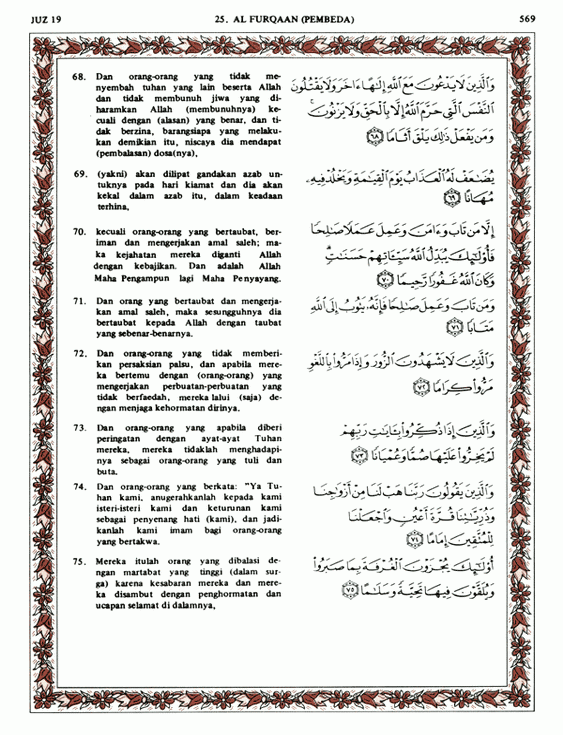 JUZ 19
25. AL FURQAAN (PEMBEDA)
569
68. Dan orang-orang yang tidak me-
nyembah tuhan yang lain beserta Allah
dan tidak membunuh jiwa yang di-
haramkan Allah (membunuhnya) ke-
cuali dengan (alasan) yang benar, dan ti-
dak berzina, barangsiapa yang melaku-
kan demikian itu, niscaya dia mendapat
(pembalasan) dosa(nya),
وَالَّذِينَ لَا يَدْعُونَ مَعَ اللَّهِ إِلَٰهًا ءَاخَرَ وَلَا يَقْتُلُونَ
النَّفْسَ الَّتِي حَرَّمَ اللَّهُ إِلَّا بِالْحَقِّ وَلَا يَزْنُونَ ۚ
وَمَن يَفْعَلْ ذَٰلِكَ يَلْقَ أَثَامًا ٦٨
69. (yakni) akan dilipat gandakan azab un-
tuknya pada hari kiamat dan dia akan
kekal dalam azab itu, dalam keadaan
terhina,
يُضَٰعَفْ لَهُ الْعَذَابُ يَوْمَ الْقِيَٰمَةِ وَيَخْلُدْ فِيهِ
مُهَانًا ٦٩
70. kecuali orang-orang yang bertaubat, ber-
iman dan mengerjakan amal saleh; ma-
ka kejahatan mereka diganti Allah
dengan kebajikan. Dan adalah Allah
Maha Pengampun lagi Maha Penyayang.
إِلَّا مَن تَابَ وَءَامَنَ وَعَمِلَ عَمَلًا صَٰلِحًا
فَأُولَٰئِكَ يُبَدِّلُ اللَّهُ سَيِّـَٔاتِهِمْ حَسَنَٰتٍ ۗ
وَكَانَ اللَّهُ غَفُورًا رَّحِيمًا ٧٠
71. Dan orang yang bertaubat dan mengerja-
kan amal saleh, maka sesungguhnya dia
bertaubat kepada Allah dengan taubat
yang sebenar-benarnya.
وَمَن تَابَ وَعَمِلَ صَٰلِحًا فَإِنَّهُ يَتُوبُ إِلَى اللَّهِ
مَتَابًا ٧١
72. Dan orang-orang yang tidak memberi-
kan persaksian palsu, dan apabila mere-
ka bertemu dengan (orang-orang) yang
mengerjakan perbuatan-perbuatan yang
tidak berfaedah, mereka lalui (saja) de-
ngan menjaga kehormatan dirinya.
وَالَّذِينَ لَا يَشْهَدُونَ الزُّورَ وَإِذَا مَرُّوا بِاللَّغْوِ
مَرُّوا كِرَامًا ٧٢
73. Dan orang-orang yang apabila diberi
peringatan dengan ayat-ayat Tuhan
mereka, mereka tidaklah menghadapi-
nya sebagai orang-orang yang tuli dan
buta.
وَالَّذِينَ إِذَا ذُكِّرُوا بِـَٔايَٰتِ رَبِّهِمْ
لَمْ يَخِرُّوا عَلَيْهَا صُمًّا وَعُمْيَانًا ٧٣
74. Dan orang-orang yang berkata: "Ya Tu-
han kami, anugerahkanlah kepada kami
isteri-isteri kami dan keturunan kami
sebagai penyenang hati (kami), dan jadi-
kanlah kami imam bagi orang-orang
yang bertakwa.
وَالَّذِينَ يَقُولُونَ رَبَّنَا هَبْ لَنَا مِنْ أَزْوَٰجِنَا
وَذُرِّيَّٰتِنَا قُرَّةَ أَعْيُنٍ وَاجْعَلْنَا
لِلْمُتَّقِينَ إِمَامًا ٧٤
75. Mereka itulah orang yang dibalasi de-
ngan martabat yang tinggi (dalam sur-
ga) karena kesabaran mereka dan mere-
ka disambut dengan penghormatan dan
ucapan selamat di dalamnya,
أُولَٰئِكَ يُجْزَوْنَ الْغُرْفَةَ بِمَا صَبَرُوا
وَيُلَقَّوْنَ فِيهَا تَحِيَّةً وَسَلَٰمًا ٧٥